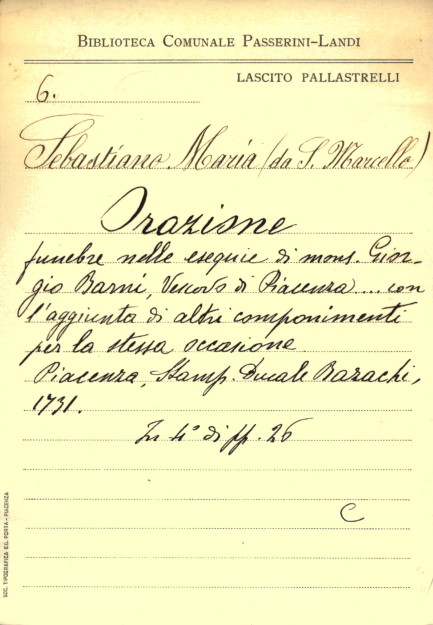 BIBLIOTECA COMUNALE PASSERINI-LANDI
LASCITO PALLASTRELLI
6.
Sebastiano Maria (da S. Marcello)
Orazione
funebre nelle esequie di mons. Gior-
gio Barni, Vescovo di Piacenza.... con
l'aggiunta di altri componimenti
per la stessa occasione
Piacenza, Stamp. Ducale Bazachi,
1731.
In 4° di pp. 26
C
SOC. TIPOGRAFICA ED. PORTA - PIACENZA